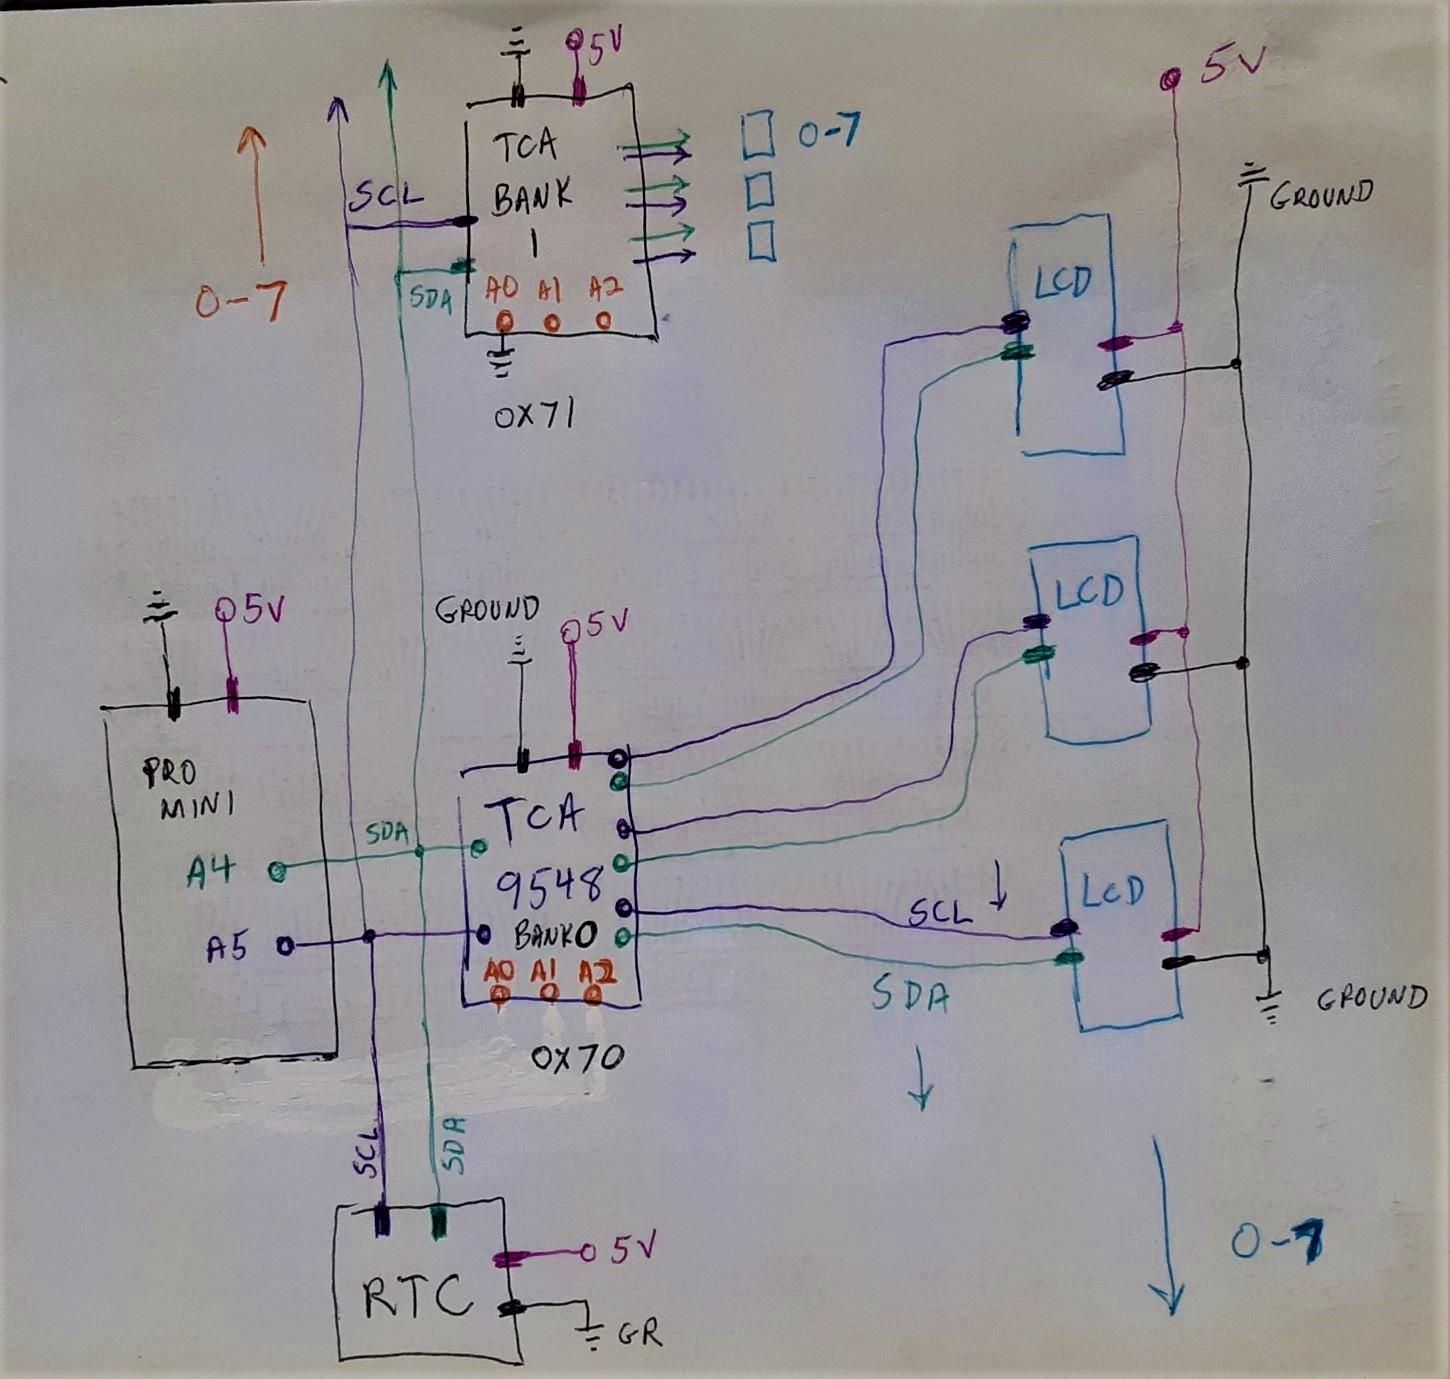 5V
TCA
BANK
1
SCL
SDA
A0 A1 A2
0X71
0-7
0-7
5V
GROUND
LCD
LCD
LCD
5V
PRO
MINI
A4
A5
SDA
GROUND
5V
TCA
9548
BANK0
A0 A1 A2
0X70
SCL
SDA
GROUND
SCL
SDA
RTC
5V
GR
0-7